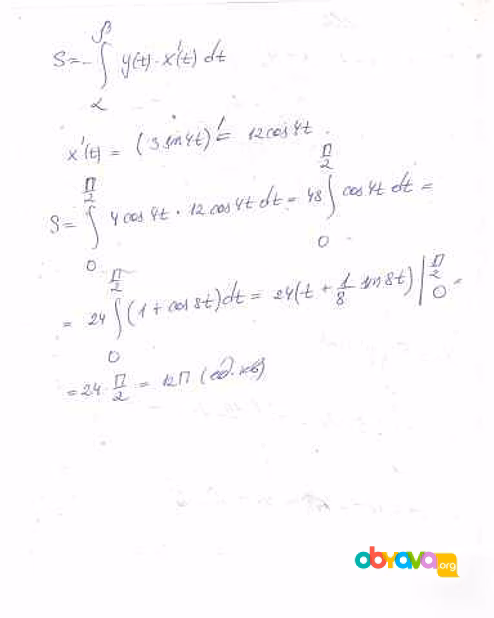 S = - ∫_α^β y(t) · x'(t) dt
x'(t) = (3 sin 4t)' = 12 cos 4t.
S = ∫_0^{π/2} 4 cos 4t · 12 cos 4t dt = 48 ∫_0^{π/2} cos 4t dt =
= 24 ∫_0^{π/2} (1 + cos 8t) dt = 24(t + 1/8 sin 8t) |_0^{π/2} =
= 24 · π/2 = 12π (ед. кв)
obrava.org